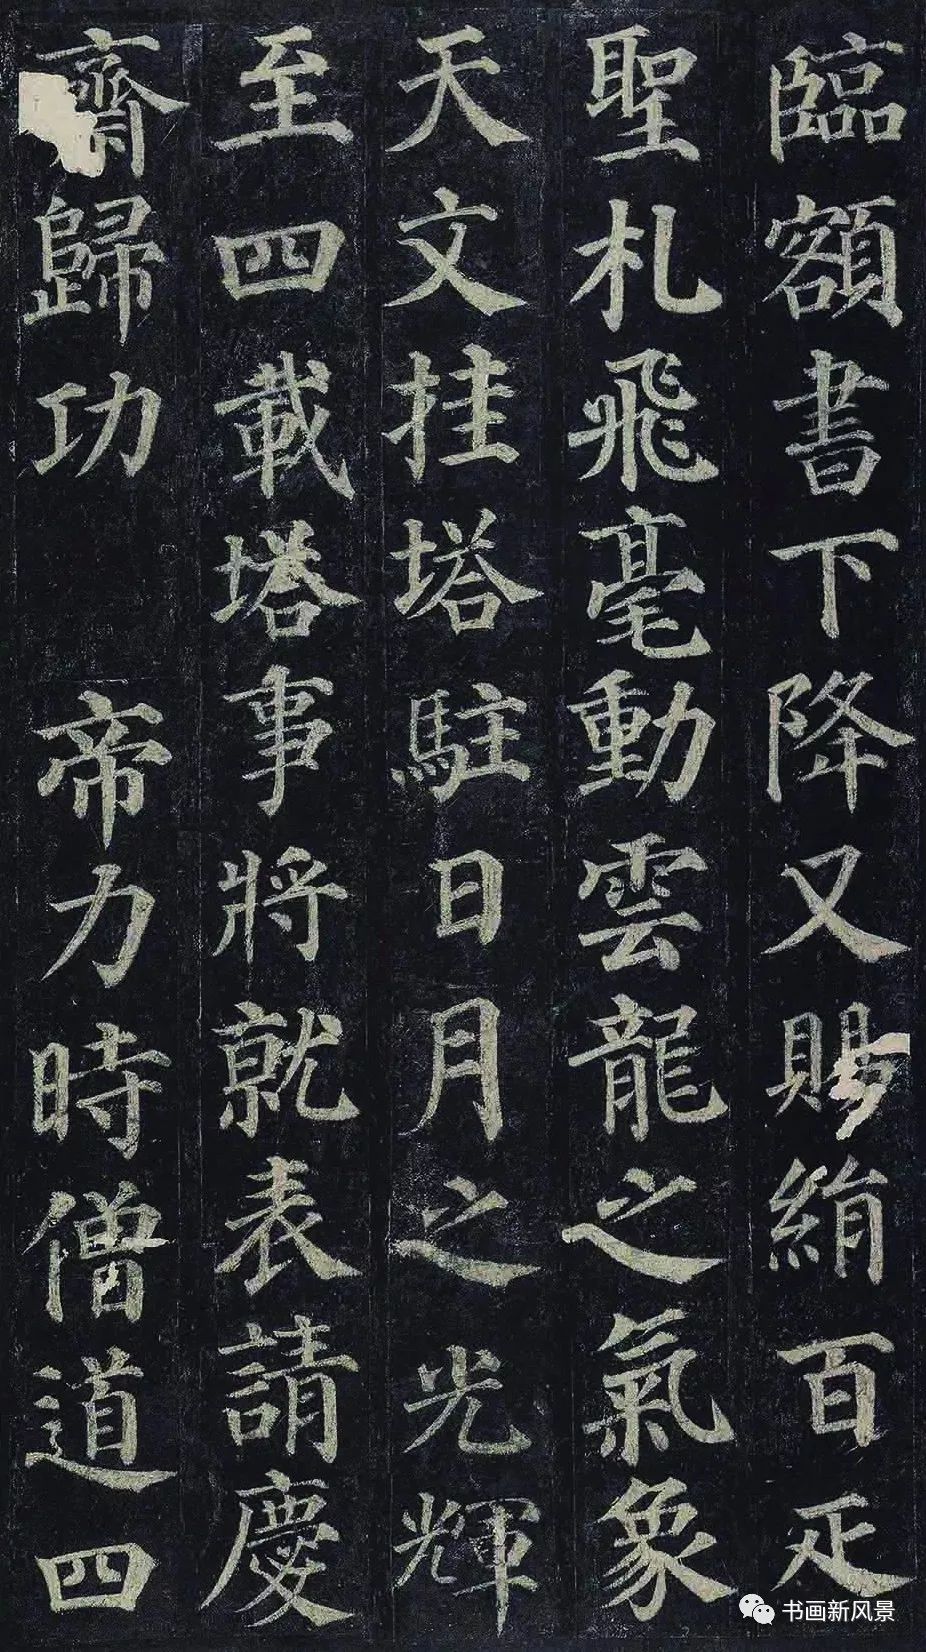 臨額書下降又賜絹百疋
聖札飛毫動雲龍之氣象
天文挂塔駐日月之光輝
至四載塔事將就表請慶
齋歸功 帝力時僧道四
书画新风景